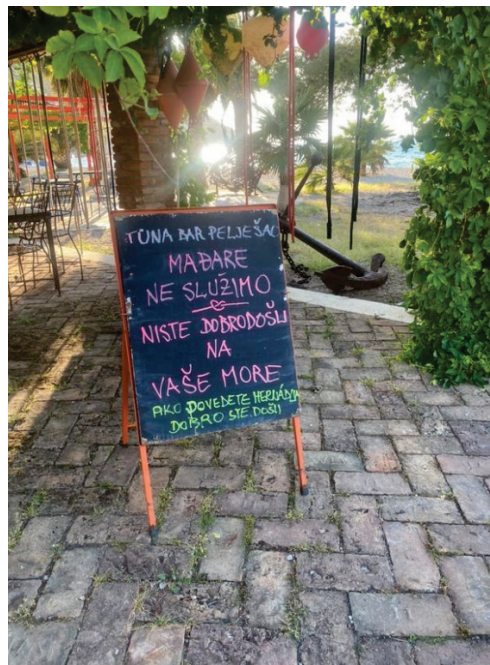 TUNA BAR PELJEŠAC
MAĐARE
NE SLUŽIMO
NISTE DOBRODOŠLI
NA
VAŠE MORE
AKO POVEDETE
DOBRO STE DOŠLI